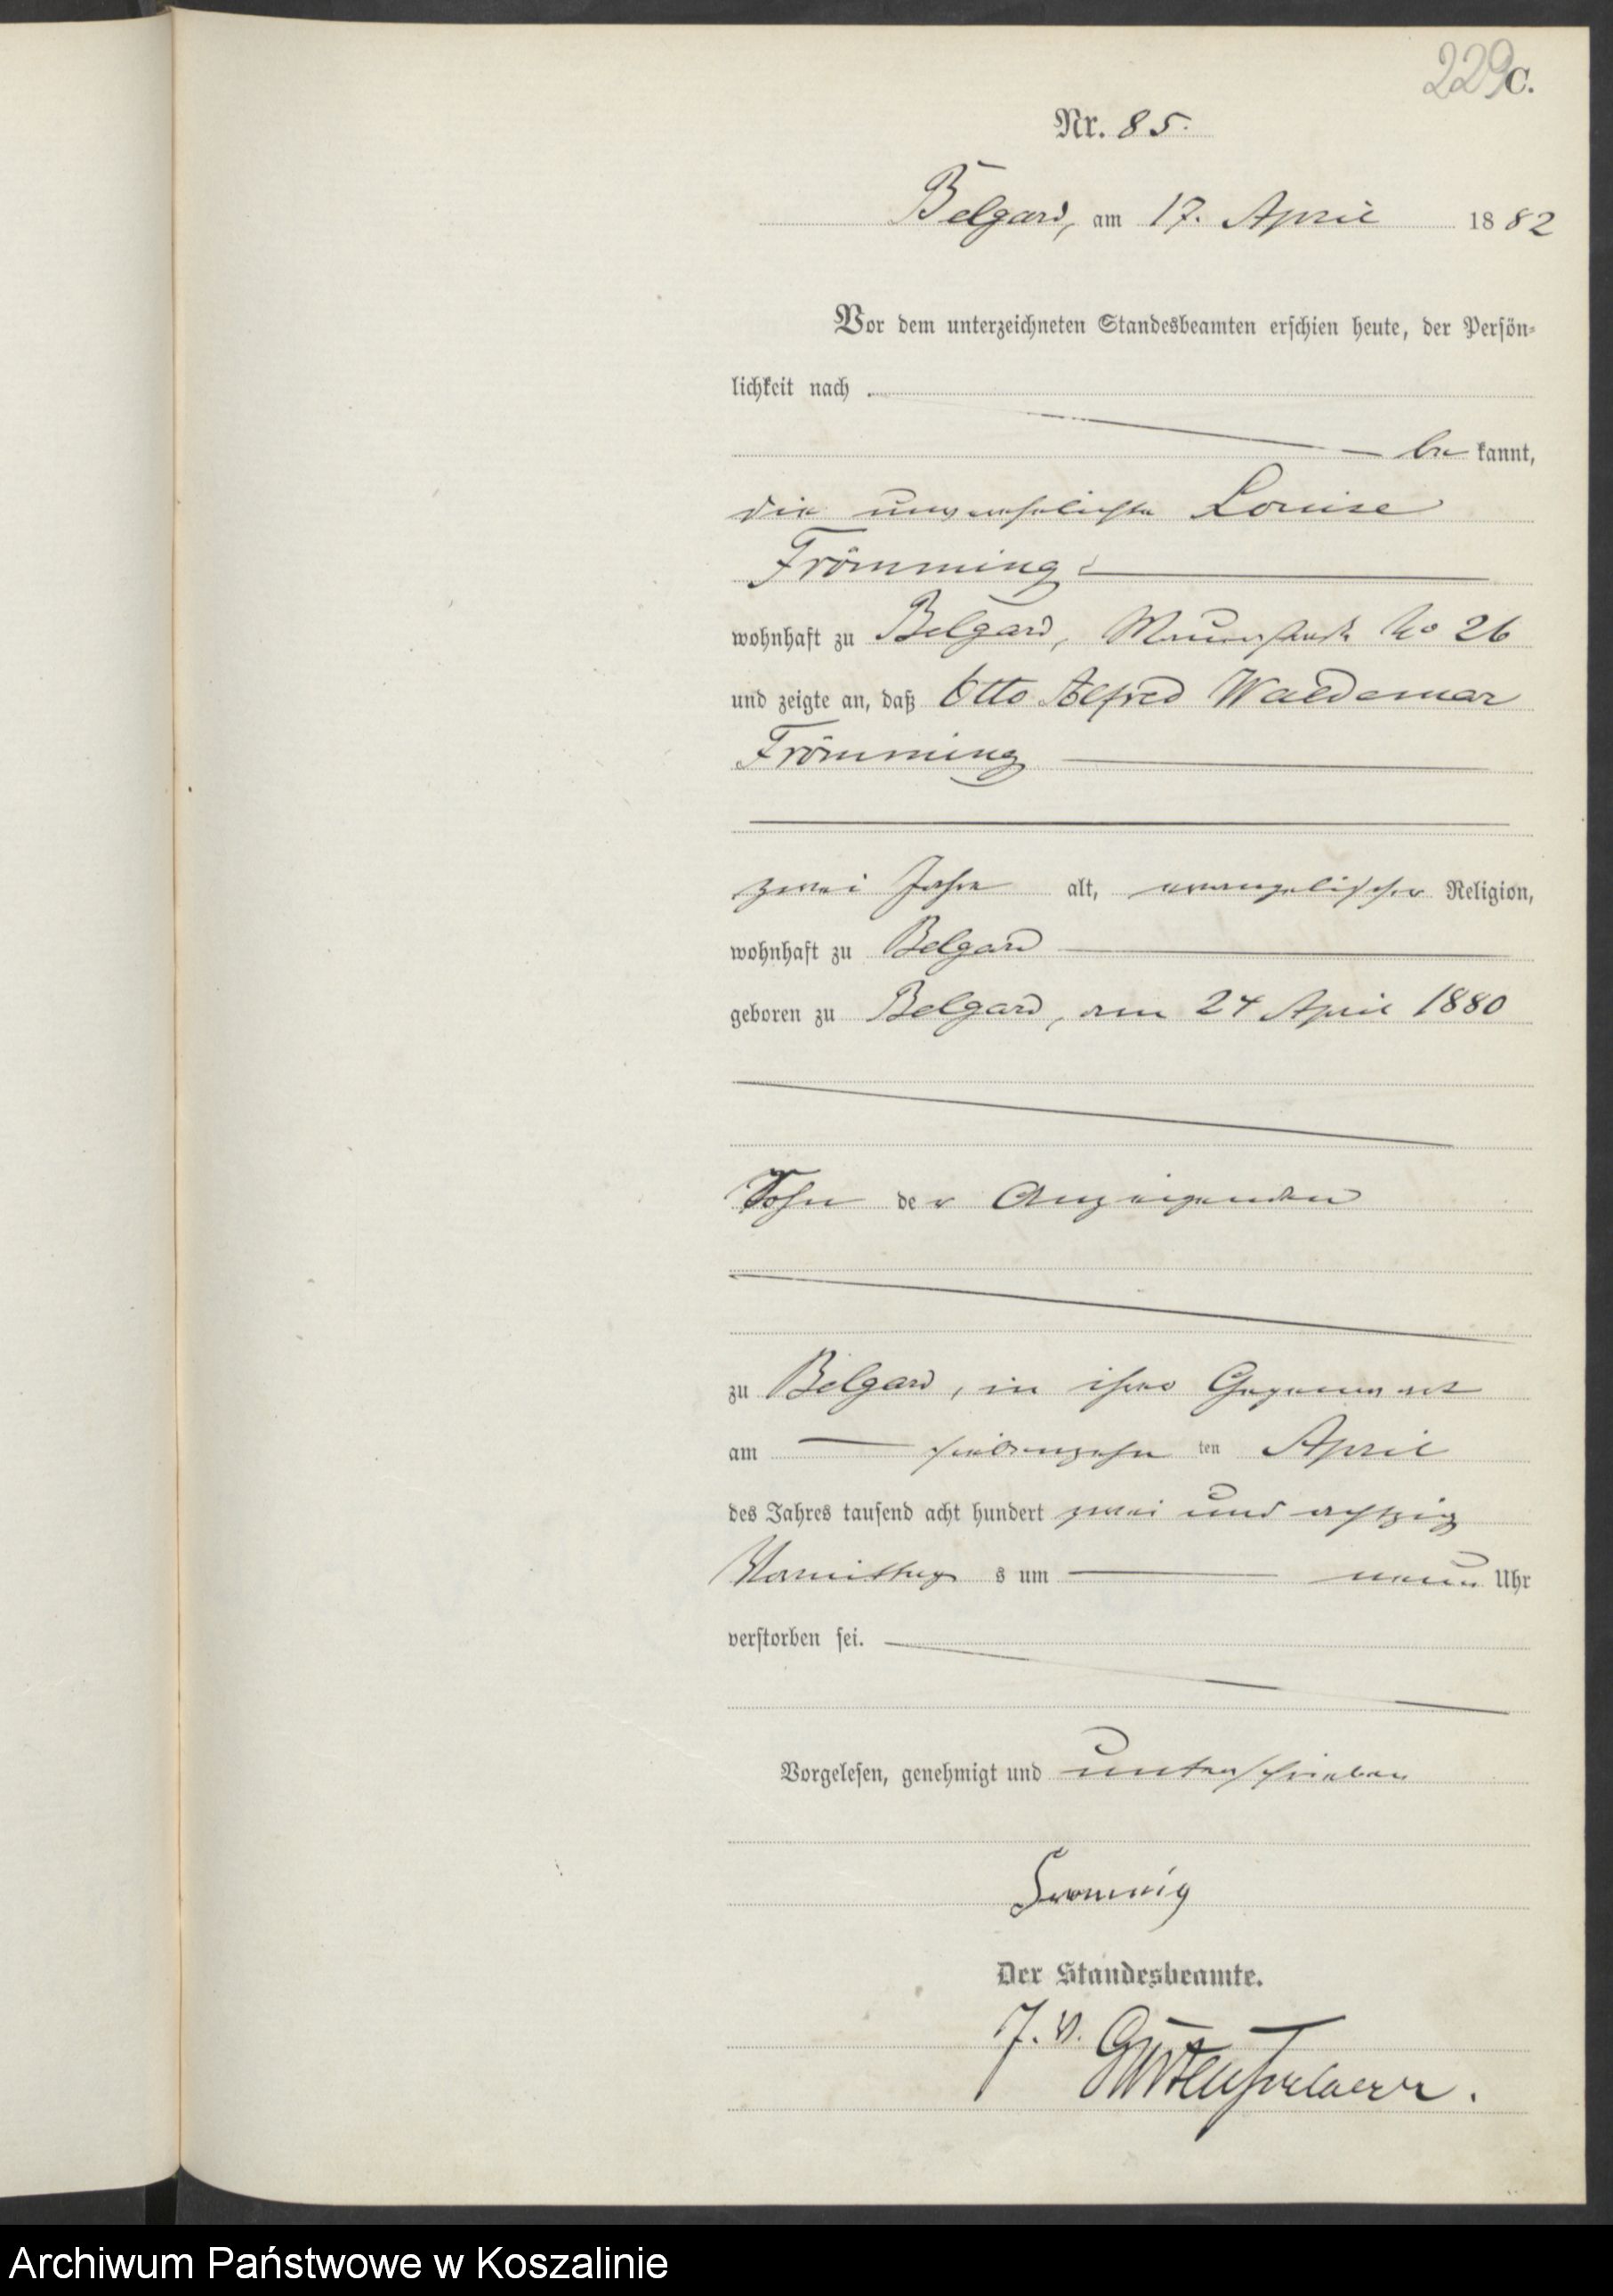 229 C.
Nr. 85.
Belgard, am 17. April 1882
Vor dem unterzeichneten Standesbeamten erschien heute, der Persön-
lichkeit nach
be kannt,
die unverehelichte Louise
Frömming
wohnhaft zu Belgard, Mauerstraße No 26
und zeigte an, daß Otto Alfred Waldemar
Frömming
zwei Jahre alt, evangelischer Religion,
wohnhaft zu Belgard
geboren zu Belgard, am 24 April 1880
Sohn der Anzeigenden
zu Belgard, in ihrer Gegenwart
am siebenzehn ten April
des Jahres tausend acht hundert zwei und achtzig
Vormittags um neun Uhr
verstorben sei.
Vorgelesen, genehmigt und unterschrieben
Der Standesbeamte.
J. V.
Archiwum Państwowe w Koszalinie